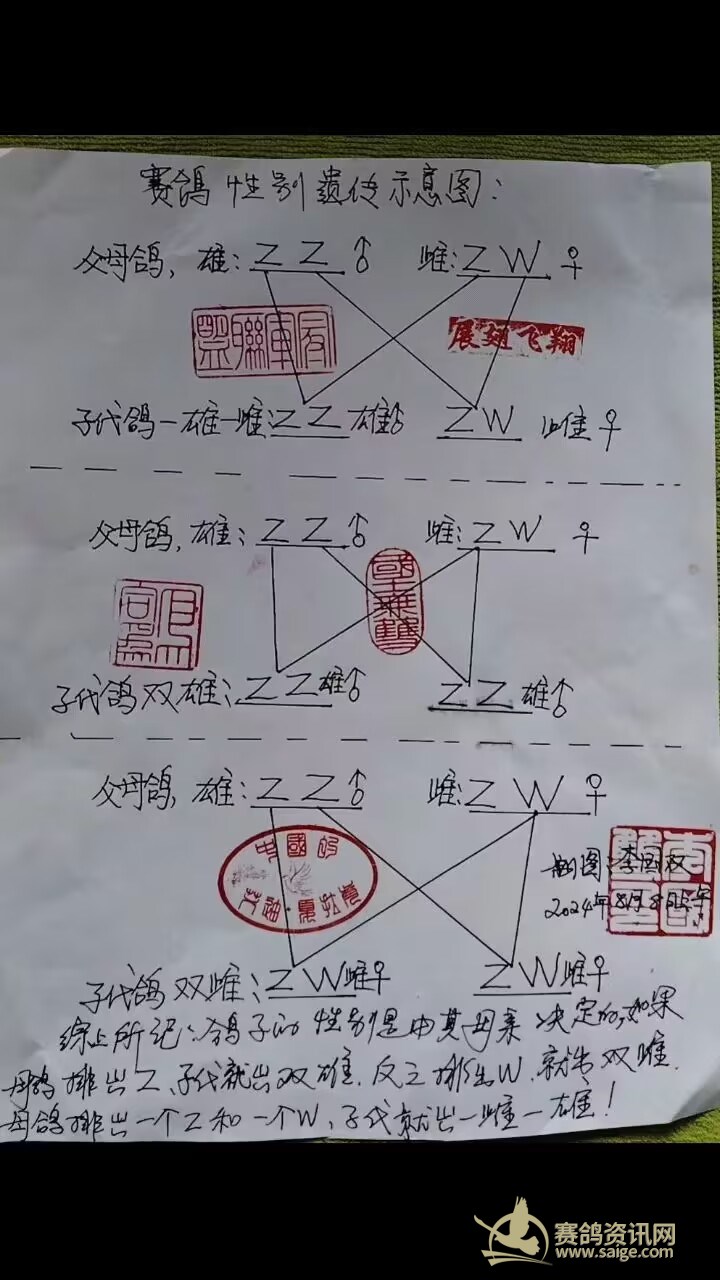 赛鸽性别遗传示意图:
父母鸽, 雄: ZZ ♂ 雌: ZW ♀
展翅飞翔
子代鸽一雄一雌: ZZ 雄♂ ZW 雌♀
父母鸽, 雄: ZZ ♂ 雌: ZW ♀
子代鸽双雄: ZZ 雄♂ ZZ 雄♂
父母鸽, 雄: ZZ ♂ 雌: ZW ♀
中國
制图:李国权
2024年8月8日
子代鸽双雌: ZW 雌♀ ZW 雌♀
综上所记:鸽子的性别是由其母亲决定的,如果
母鸽排出Z、子代就出双雄.反之排出W.就出双雌.
母鸽排出一个Z和一个W、子代就出一雌一雄!
赛鸽资讯网
www.saige.com